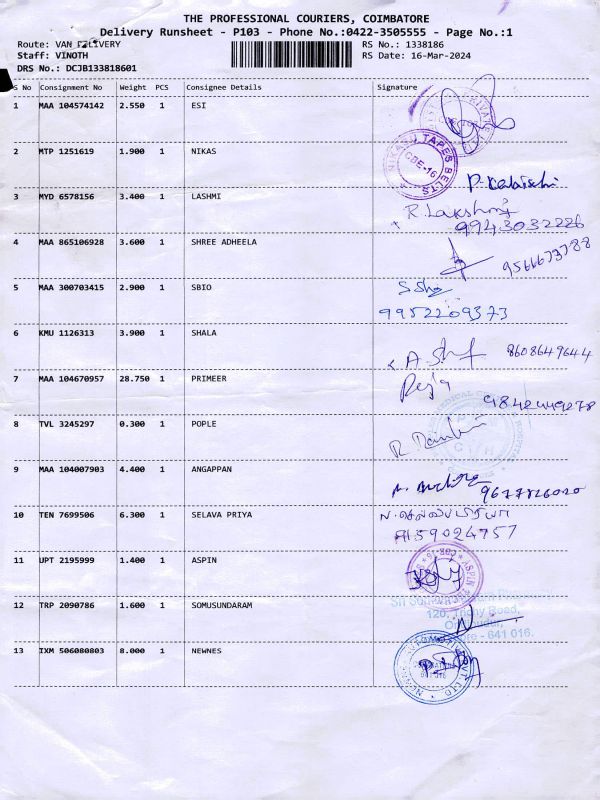 THE PROFESSIONAL COURIERS, COIMBATORE
Delivery Runsheet - P103 - Phone No.:0422-3505555 - Page No.:1
Route: VAN DELIVERY
RS No.: 1338186
Staff: VINOTH
RS Date: 16-Mar-2024
DRS No.: DCJB133818601
S No Consignment No Weight PCS Consignee Details Signature
1 MAA 104574142 2.550 1 ESI
2 MTP 1251619 1.900 1 NIKAS
NIKASU TAPES BELTS
CBE-16
3 MYD 6578156 3.400 1 LASHMI
R. Lakshmi
9943032226
4 MAA 865106928 3.600 1 SHREE ADHEELA
9566673788
5 MAA 300703415 2.900 1 SBIO
9952209373
6 KMU 1126313 3.900 1 SHALA
8608649644
7 MAA 104670957 28.750 1 PRIMEER
8 TVL 3245297 0.300 1 POPLE
9 MAA 104007903 4.400 1 ANGAPPAN
10 TEN 7699506 6.300 1 SELAVA PRIYA
11 UPT 2195999 1.400 1 ASPIN
12 TRP 2090786 1.600 1 SOMUSUNDARAM
120, Trichy Road,
641 016.
13 IXM 506080803 8.000 1 NEWNES